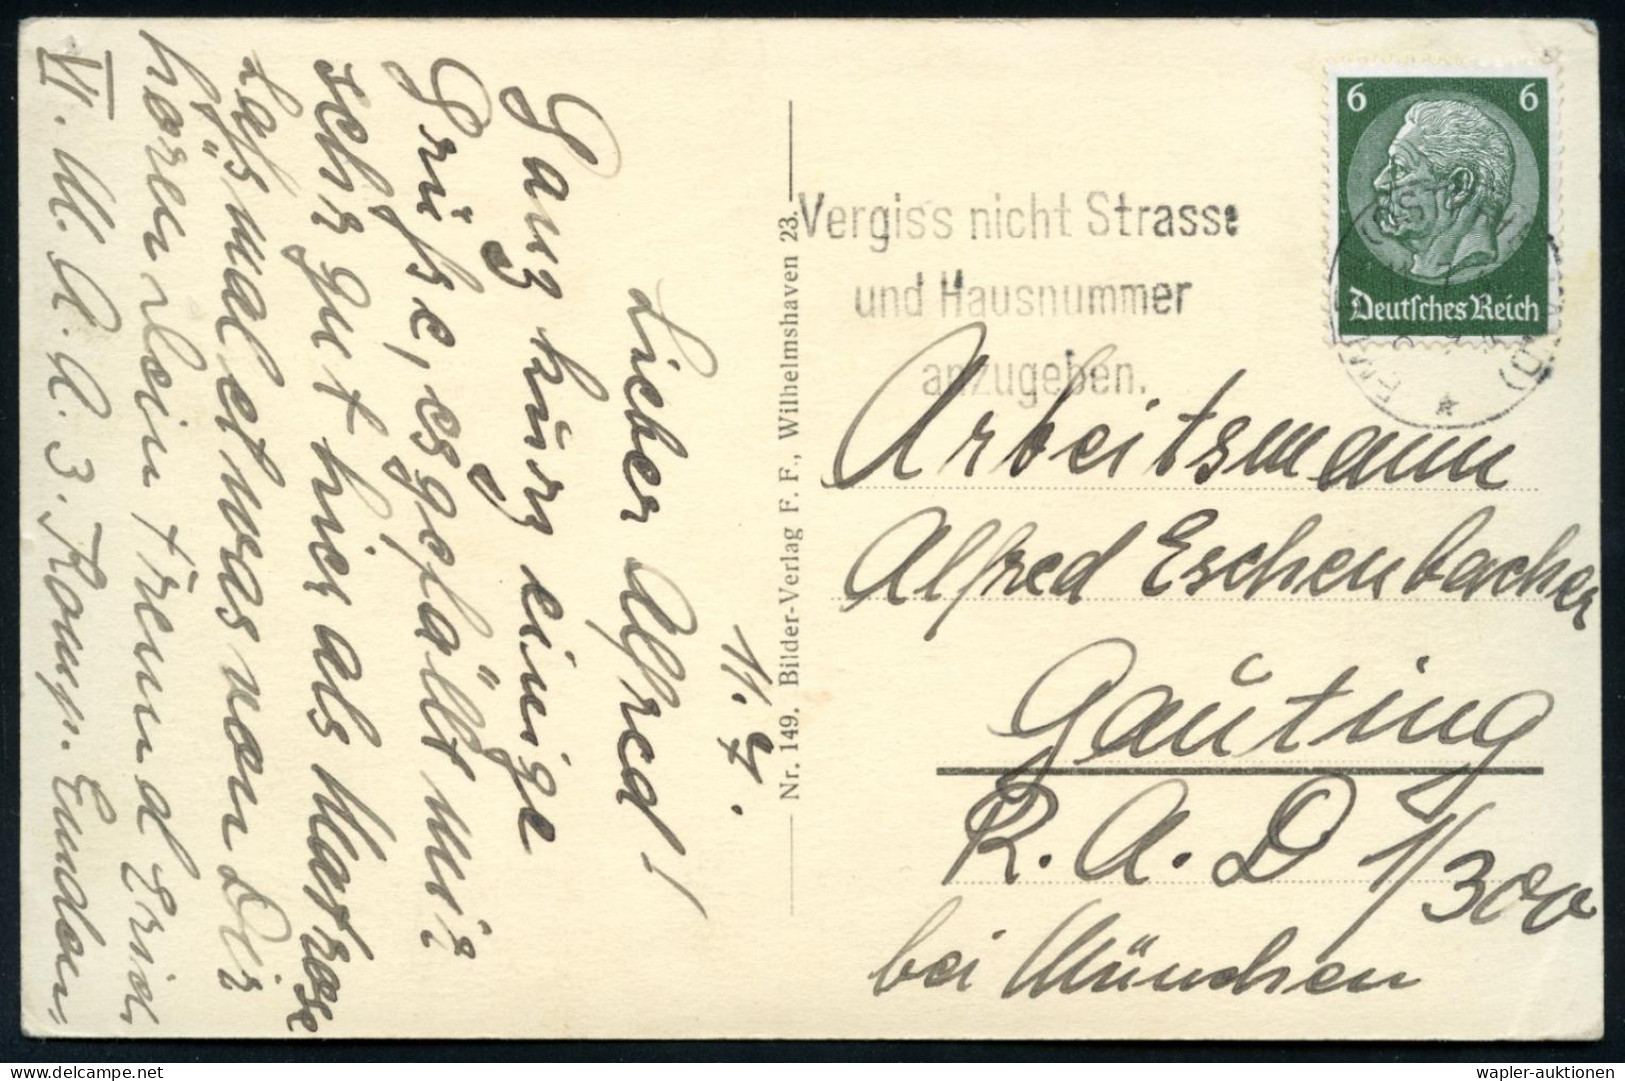 11. 4.
Lieber Alfred!
Ganz kurz einige
Grüße, es gefällt mir
sehr gut hier als Matrose
Laß mal etwas von Dir
hören Dein Freund Erich
VI. M. A. A. 3. Komp. Emden
Nr. 149. Bilder-Verlag F. F., Wilhelmshaven 23.
Vergiss nicht Strasse
und Hausnummer
anzugeben.
6 6
Deutsches Reich
Arbeitsmann
Alfred Eschenbacher
Gauting
R. A. D 1/300
bei München
wapler-auktionen